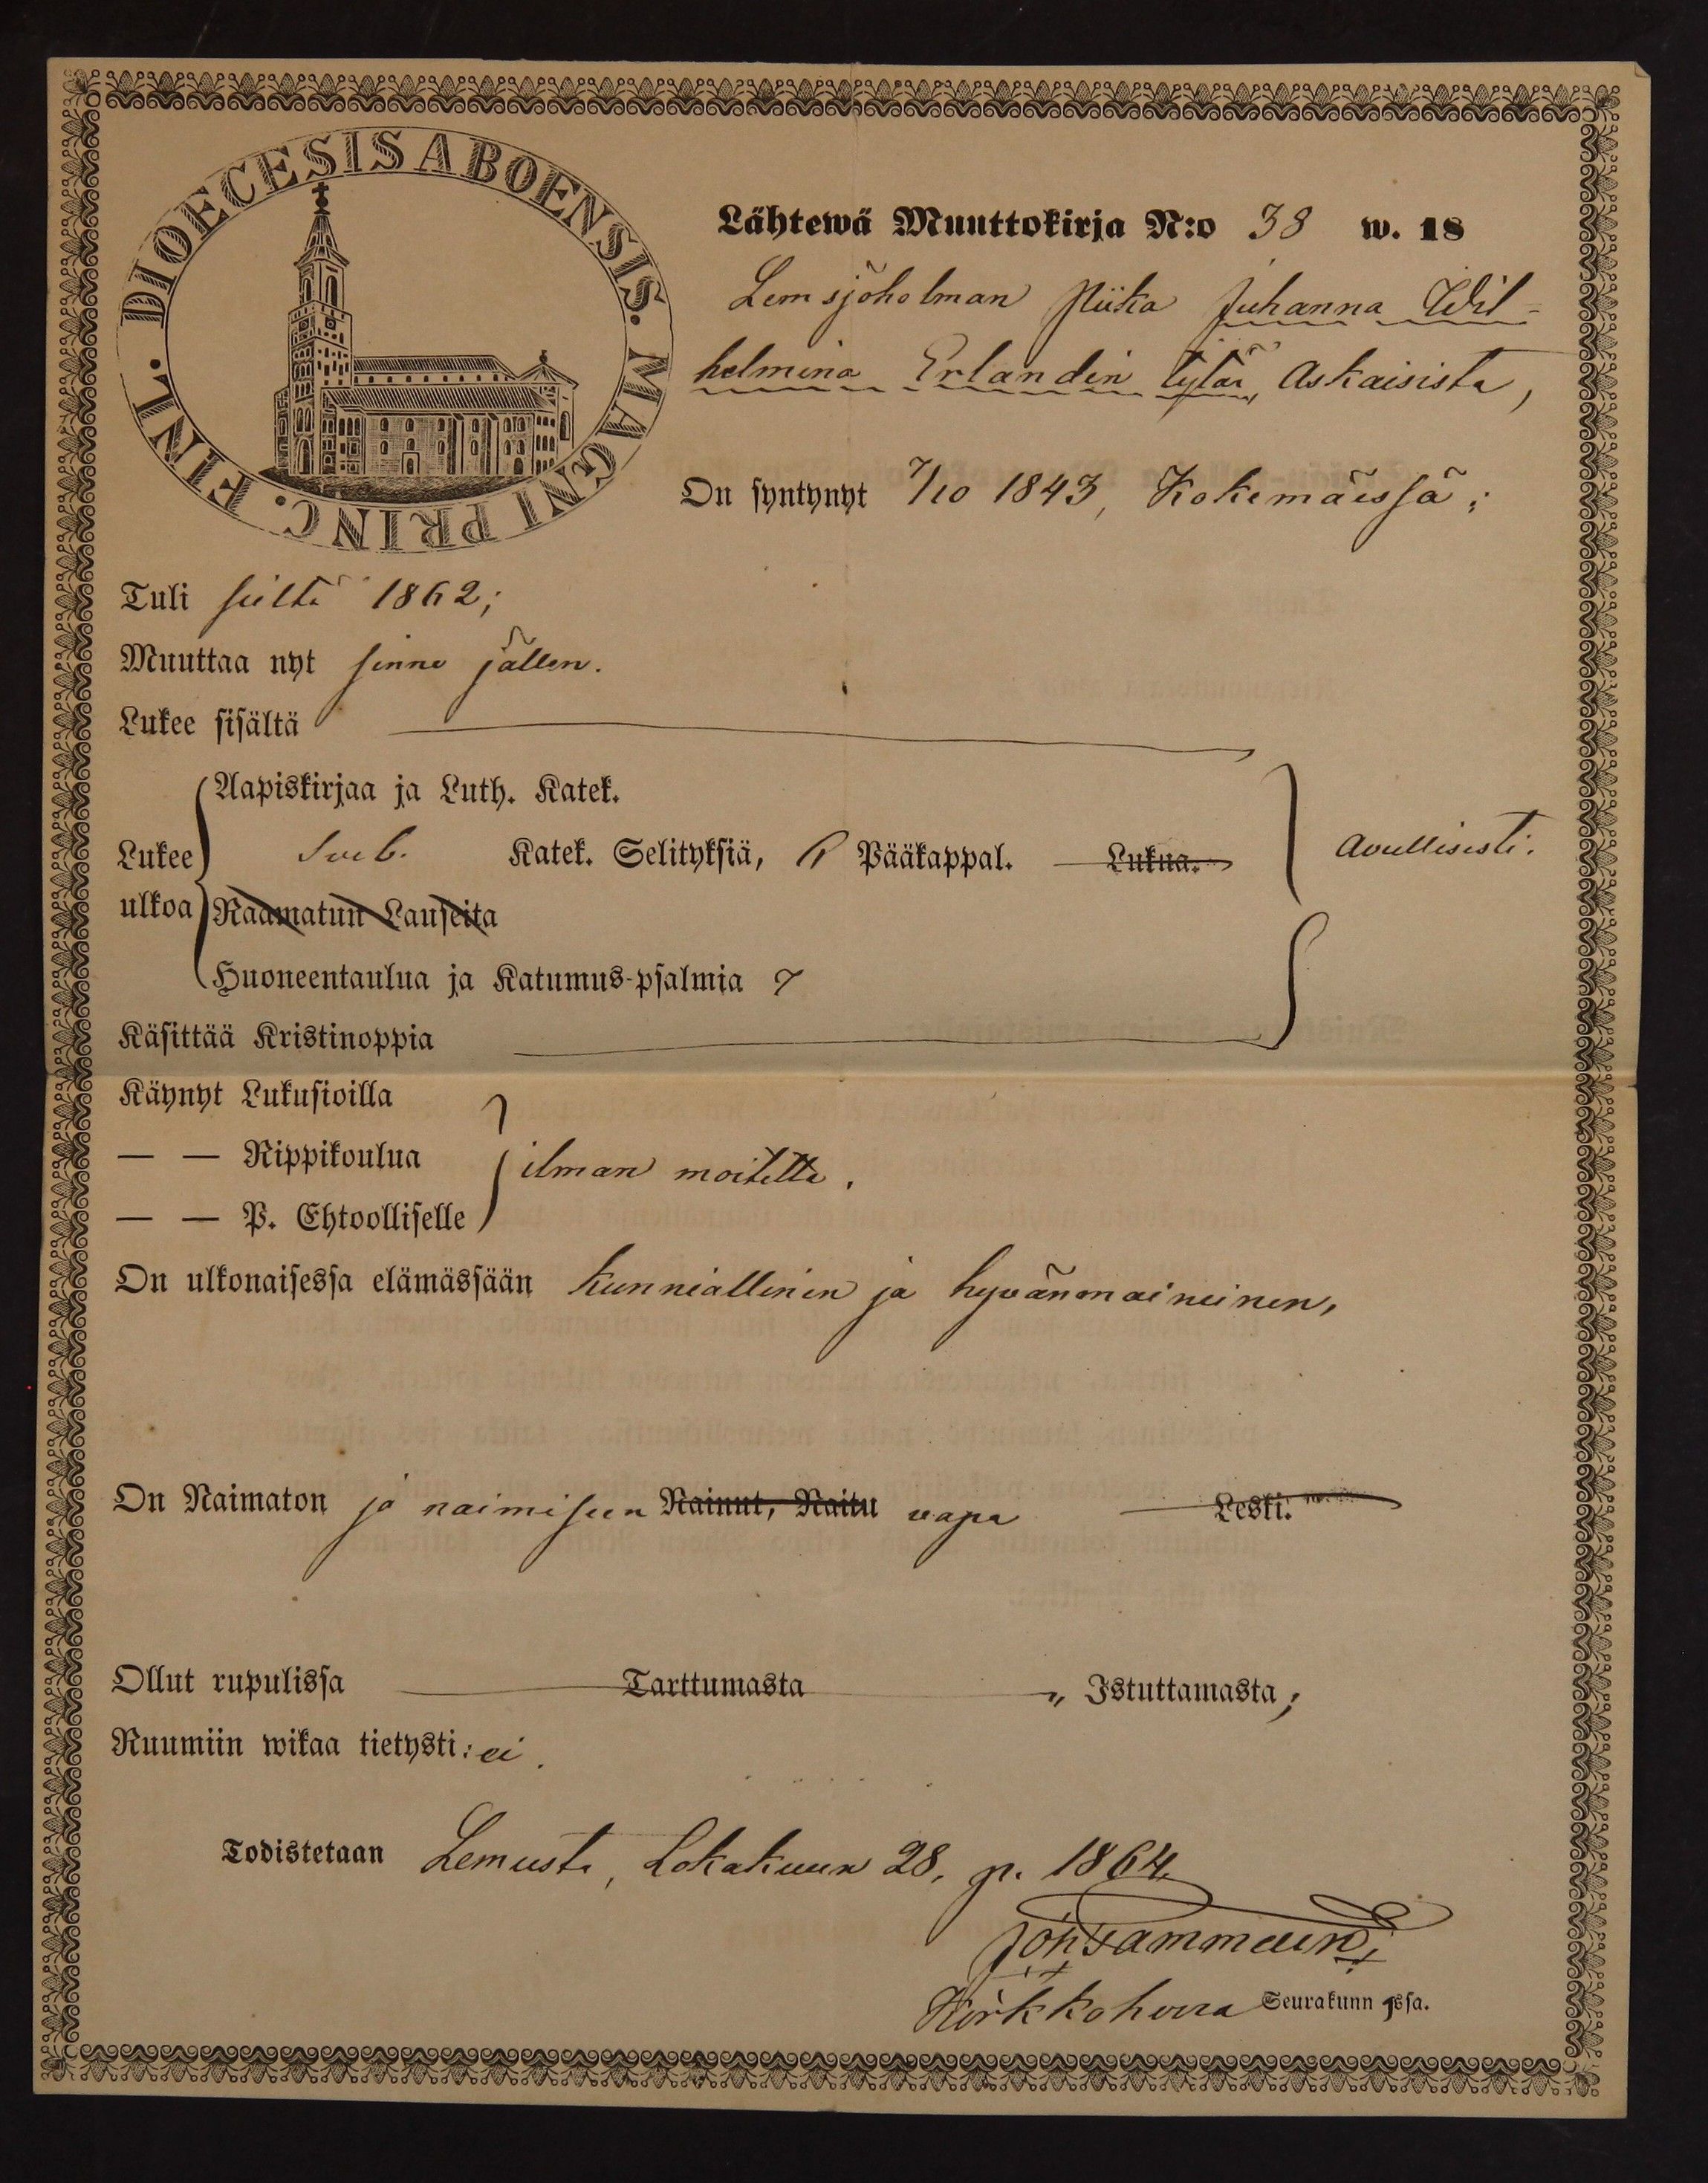 DIOECESIS ABOENSIS. MAGNI PRINC. FINL.
Lähtewä Muuttokirja N:o 38 w. 18
Lemsjöholman Piika Juhanna Wil-
helmina Erlandin tytär, Askaisista,
On syntynyt 7/10 1843, Kokemäessä;
Tuli sieltä 1862;
Muuttaa nyt sinne jällen.
Lukee sisältä
Aapiskirjaa ja Luth. Katek.
Lukee Sveb. Katek. Selityksiä, 6 Pääkappal. Lukua. Avullisesti.
ulkoa Raamatun Lauseita
Huoneentaulua ja Katumus-psalmia 7
Käsittää Kristinoppia
Käynyt Lukusioilla
— — Rippikoulua ilman moitetta.
— — P. Ehtoolliselle
On ulkonaisessa elämässään kunniallinen ja hyvänmaineinen,
On Naimaton ja naimiseen Nainut, Naitu vapa Leski.
Ollut rupulissa Tarttumasta „ Istuttamasta;
Ruumiin wikaa tietysti: ei.
Todistetaan Lemusta, Lokakuun 28. p. 1864.
Joh Tammelin;
Kirkkoherra Seurakunnassa.